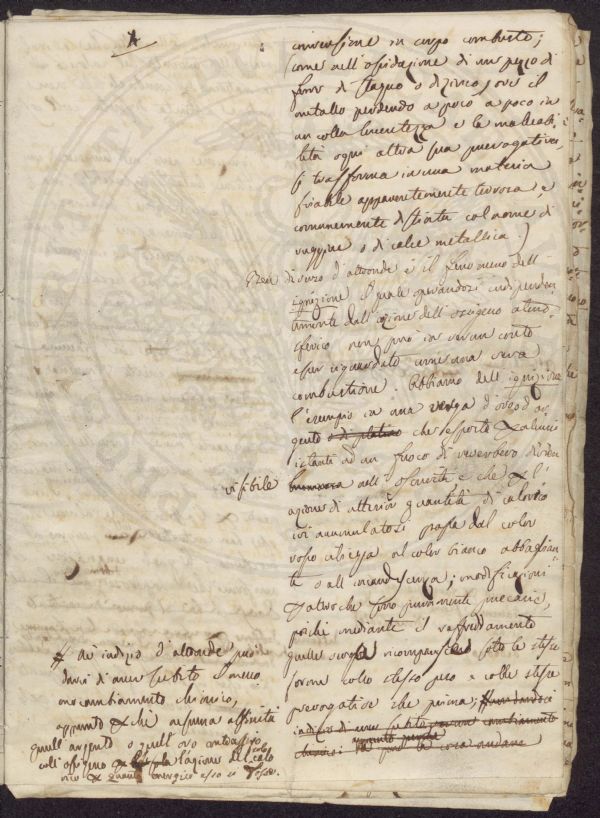 conversione in corpo combusto;
(come nell'ossidazione di un pezzo di
ferro di stagno o di zinco, ove il
metallo perdendo a poco a poco in
un colla lucentezza e la malleabi
lità ogni altra sua prerogativa,
si trasforma in una materia
friabile apparentemente terrosa, e
comunemente distinta col nome di
ruggine o di calce metallica.)
Ben diverso d'altronde è il fenomeno dell'
ignizione il quale operandosi indipenden
temente dall'azione dell'ossigeno atmo
sferico non può in verun conto
esser riguardato come una vera
combustione. Abbiamo dell'ignizione
l'esempio in una verga d'oro o d'ar
gento o di platino che esposta x alcuni
istanti ad un fuoco di riverbero diviene
visibile luminosa nell'oscurità e che x l'
azione di ulterior quantità di calorico
ivi accumulatosi passa dal color
rosso ciliegia al color bianco abbaglian
te o all'incandescenza; modificazioni
d'altronde puramente meccaniche,
poiché mediante il raffreddamento
quelle verghe ricompariscono sotto le stesse
forme collo stesso peso e colle stesse
prerogative che prima; non dandoci
indizio di aver subito verun cambiamento
chimico
# Né indizio d'altronde può
darci di aver subito il meno
mo cambiamento chimico,
appunto xché nessuna affinità
quell'argento o quell'oro
coll'ossigeno l'azione del calo
rico x quanto energico esso si fosse.